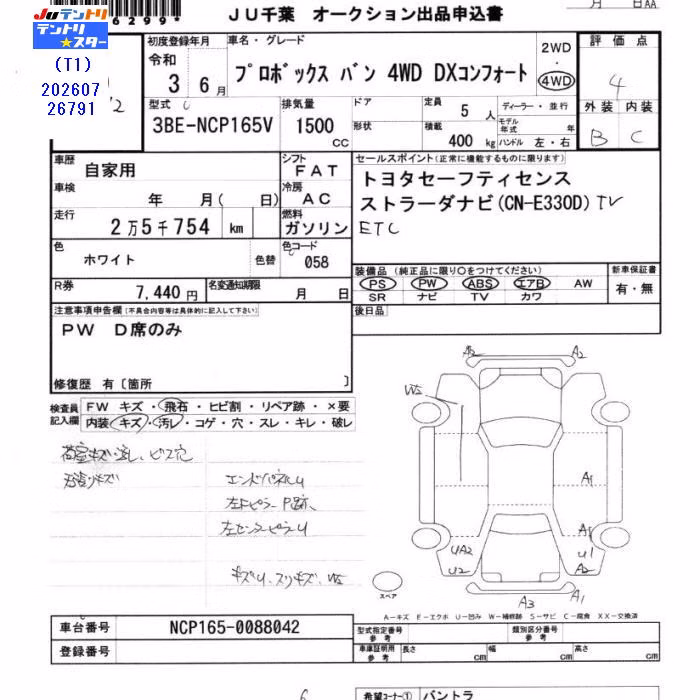 6299
JU千葉 オークション出品申込書
月 日AA
JUテントリ
テントリ★スター
(T1)
202607
26791
2
初度登録年月 車名・グレード 2WD ・ 4WD 評価点
令和 3年 6月 プロボックス バン 4WD DXコンフォート 4
型式 排気量 ドア 定員 5人 ディーラー・並行 外装 内装
3BE-NCP165V 1500CC 形状 積載 400kg モデル年式 年 ハンドル 左・右 B C
車歴 自家用 シフト FAT セールスポイント(正常に機能するものに限ります)
車検 年 月( 日) 冷房 AC トヨタセーフティセンス
走行 2万5千754 km 燃料 ガソリン ストラーダナビ(CN-E330D) TV
ETC
色 ホワイト 色替 色コード 058
装備品(純正品に限り○をつけてください) 新車保証書
PS ・ PW ・ ABS ・ エアB ・ AW 有・無
SR ナビ TV カワ
R券 7,440円 名変通知期限 月 日
後日品
注意事項申告欄(不具合内容等は具体的に記入して下さい)
PW D席のみ
修復歴 有〔箇所 〕
検査員記入欄 FW キズ・飛石・ヒビ割・リペア跡・×要
内装・キズ・汚レ・コゲ・穴・スレ・キレ・破レ
荷室キズ・汚し、ビス穴
エンドパネルU
左Fピラー P跡
左センターピラーU
キズU、スリキズ、W2
A2 A2
W2
A1
A1
UA2 U1
U2 A2
A3 A1
スペア
A-キズ E-エクボ U-凹み W-補修跡 S-サビ C-腐食 XX-交換済
車台番号 NCP165-0088042 型式指定番号 参考 類別区分番号 参考
登録番号 車庫証明用 参考 長さ cm 幅 cm 高さ cm
6
希望コーナー① バントラ